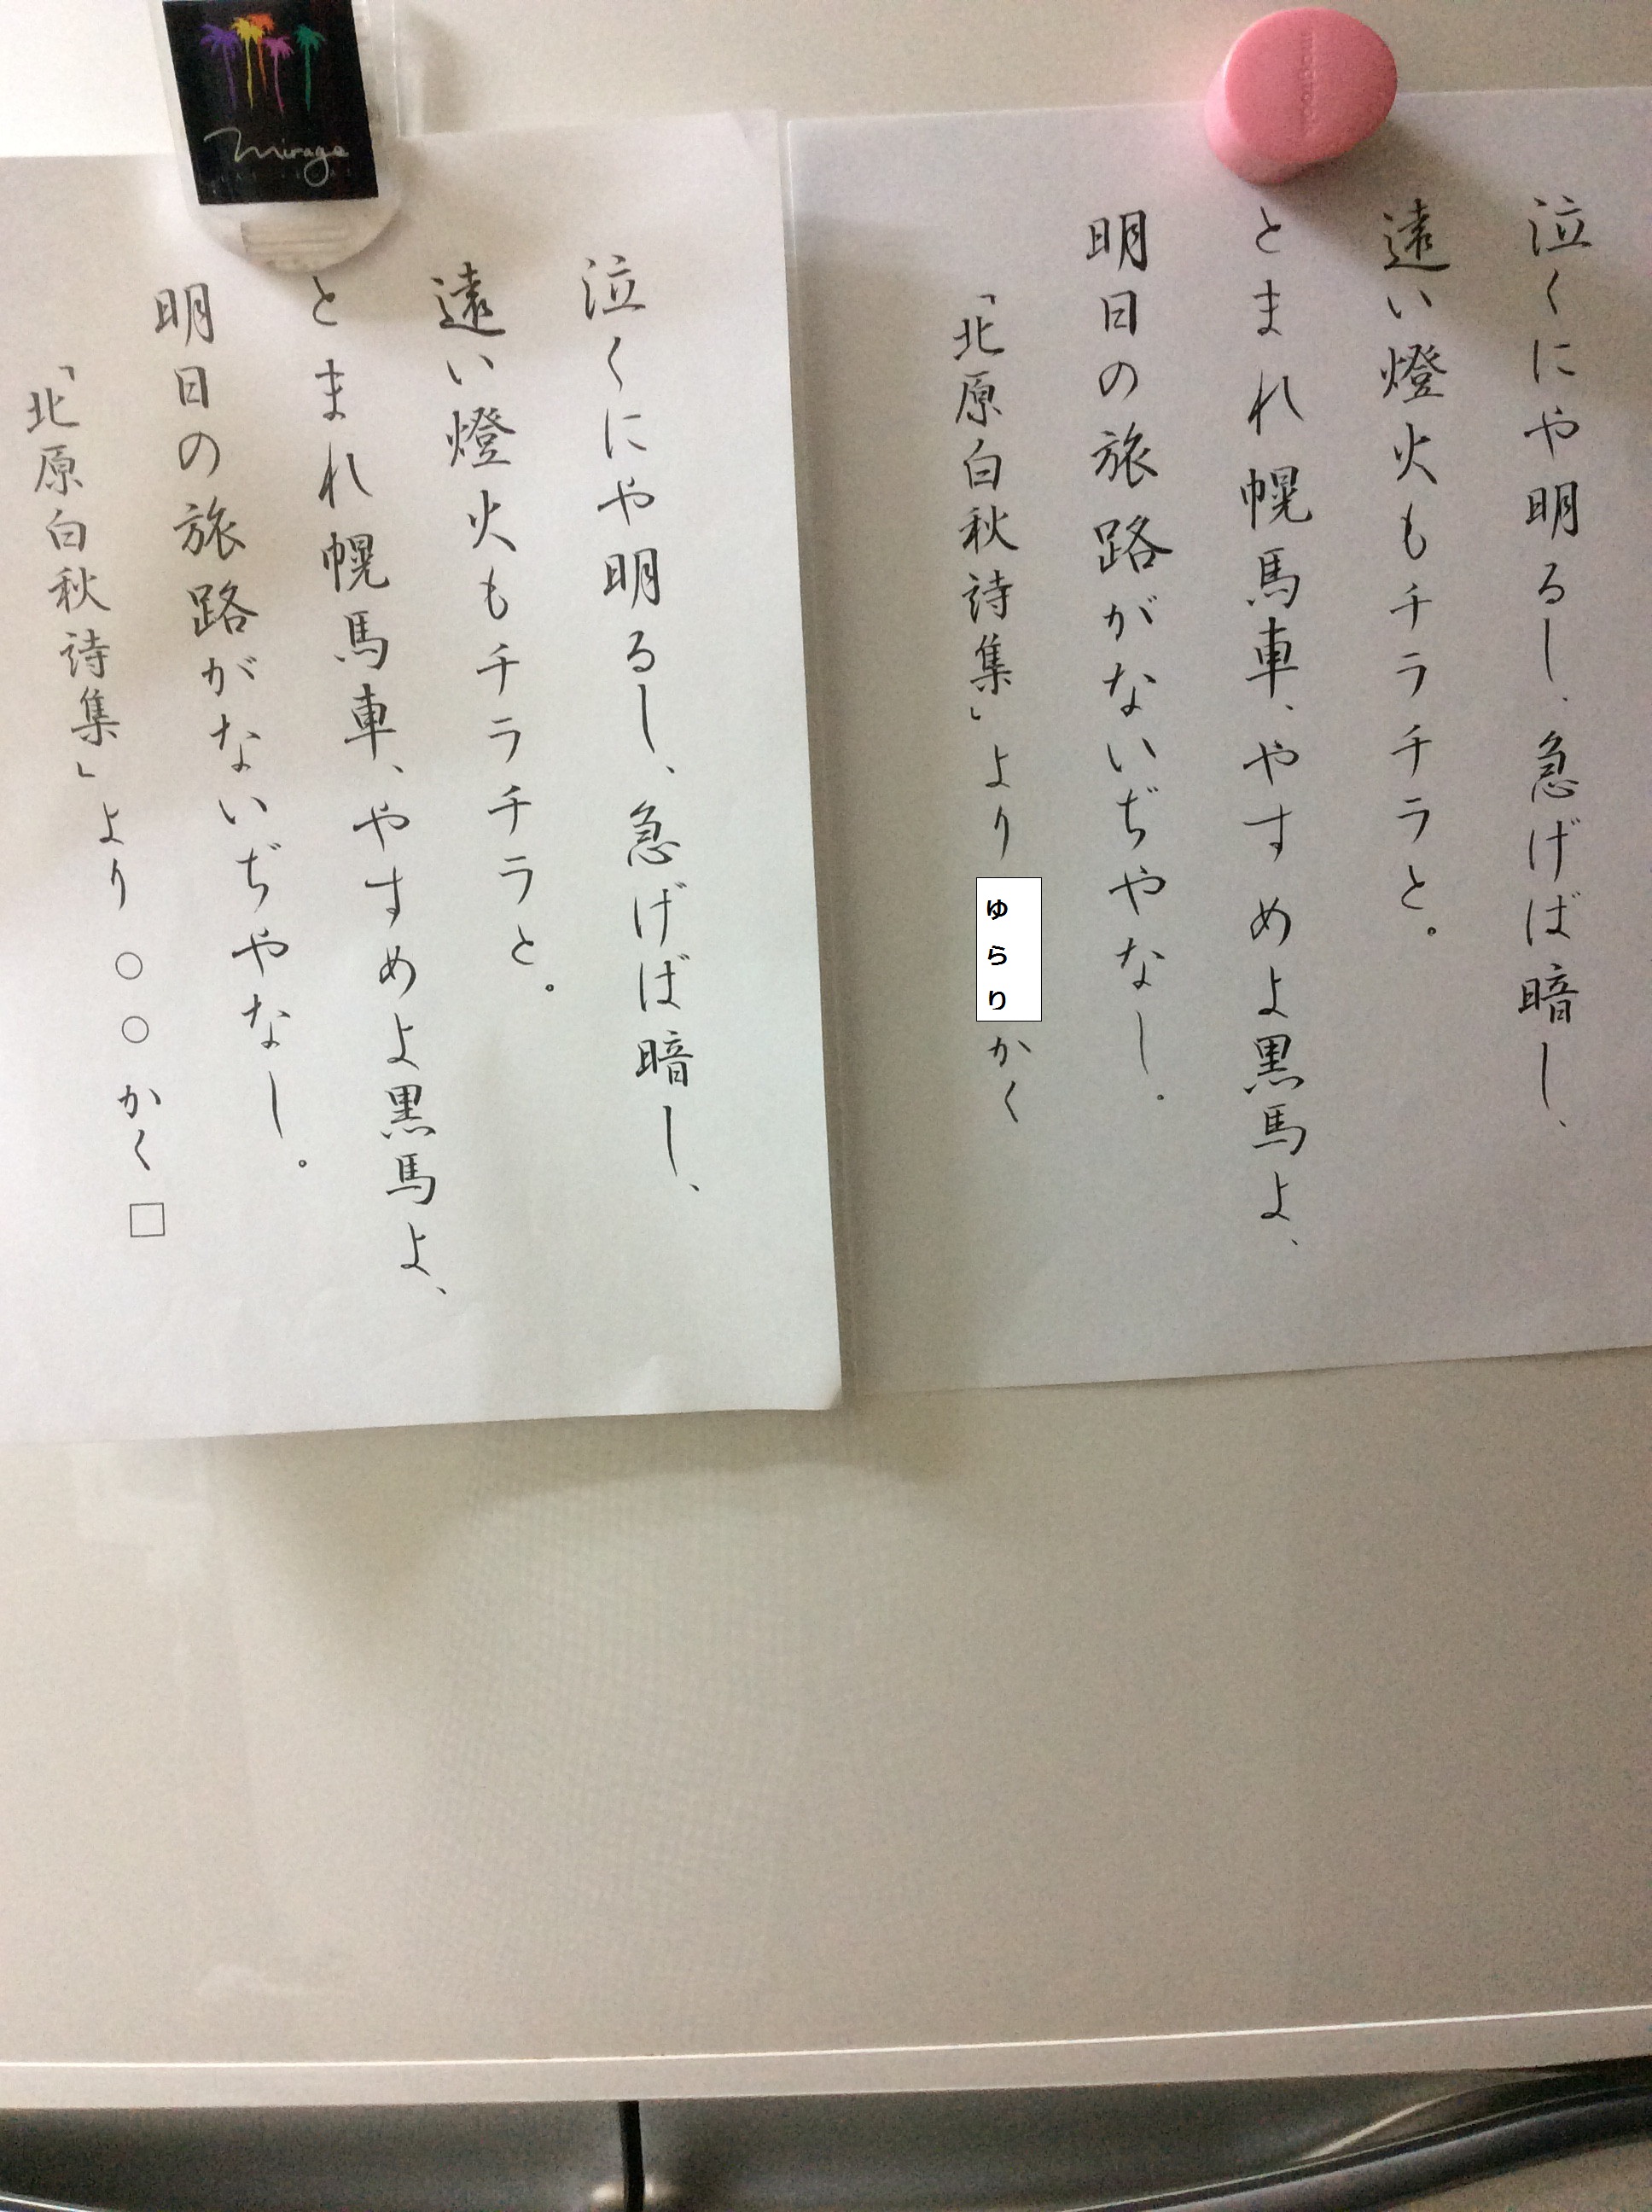 泣くにや明るし、急げば暗し、
遠い燈火もチラチラと。
とまれ幌馬車、やすめよ黒馬よ、
明日の旅路がないぢやなし。
「北原白秋詩集」より ゆらり かく
mirage
泣くにや明るし、急げば暗し、
遠い燈火もチラチラと。
とまれ幌馬車、やすめよ黒馬よ、
明日の旅路がないぢやなし。
「北原白秋詩集」より ○○かく□